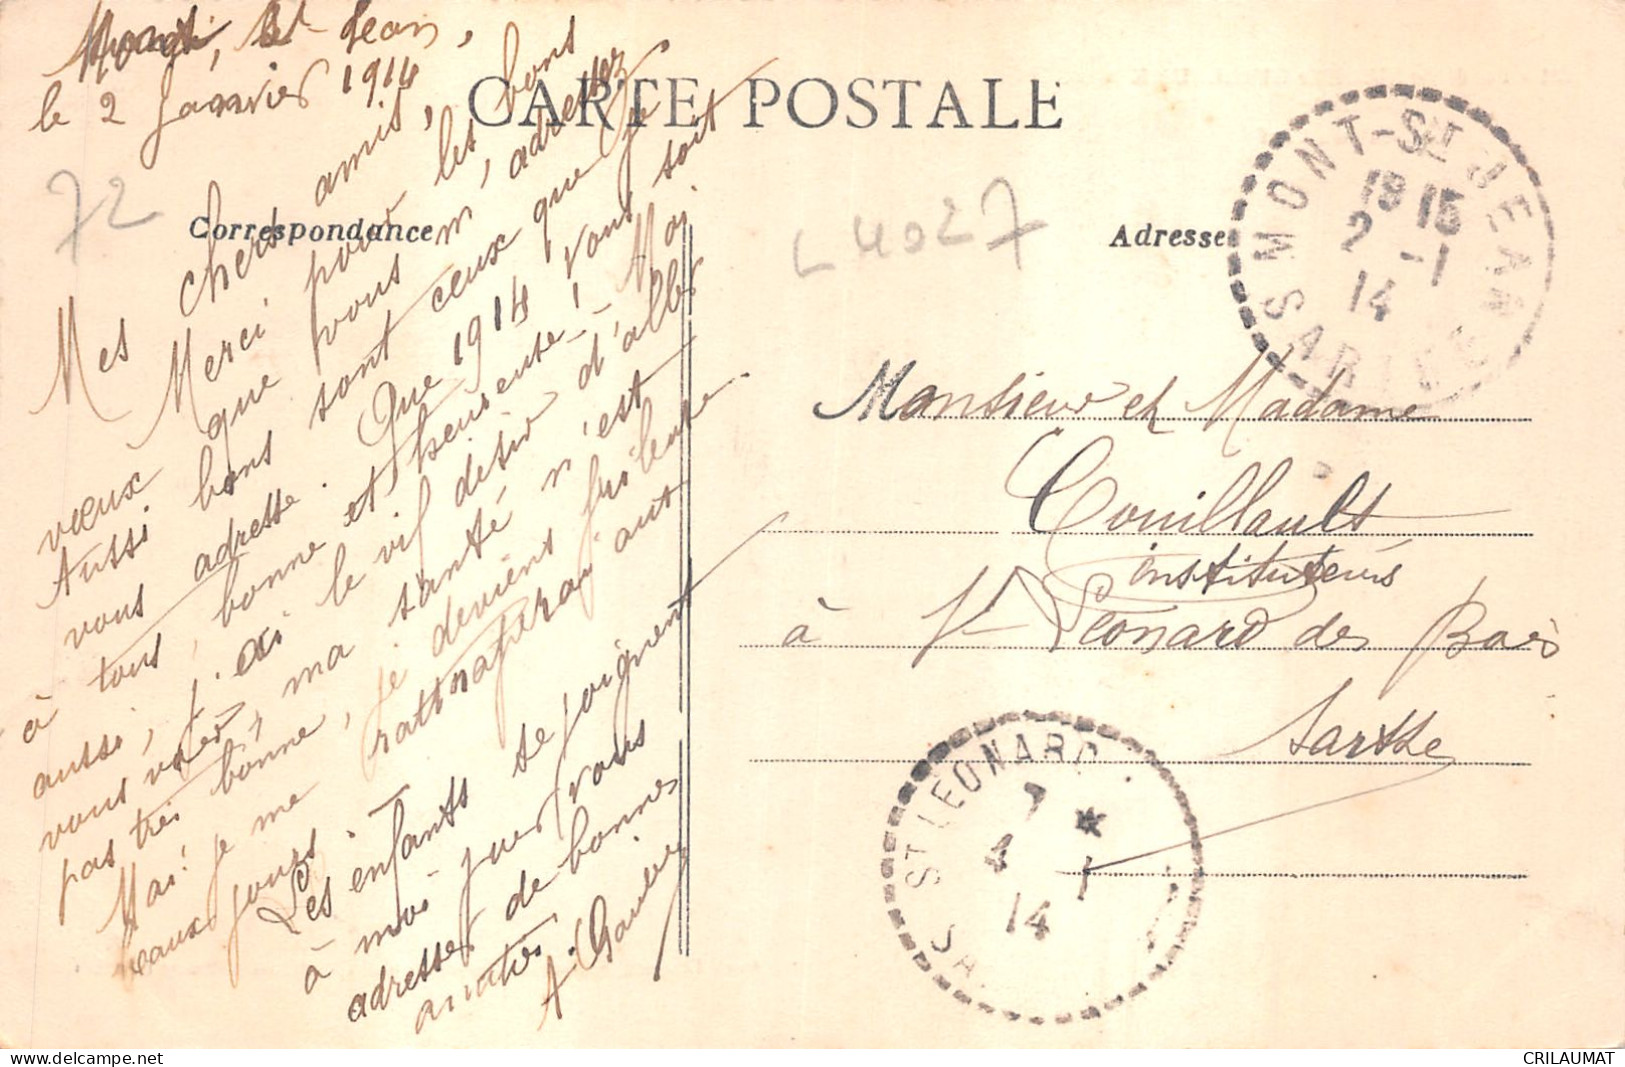 Mont St Jean,
le 2 Janvier 1914
CARTE POSTALE
72
Correspondance
L 4027
Adresse
MONT-ST JEAN
18 15
2 -1
14
SARTHE
Mes chers amis,
Merci pour les bons
vœux que vous m'adressez
Aussi bons sont ceux que je
vous adresse. Que 1914 vous soit
à tous, bonne et heureuse! Moi
aussi, j'ai le vif désir d'aller
vous voir, ma santé n'est
pas très bonne, je deviens
Mais je me rattraperai aux
beaux jours!
Les enfants se joignent
à moi pour vous
adresser de bonnes
amitiés.
Monsieur et Madame
Couillault
instituteurs
à St Léonard des Bois
Sarthe
ST LEONARD
7 *
4 1
14
SA
CRILAUMAT